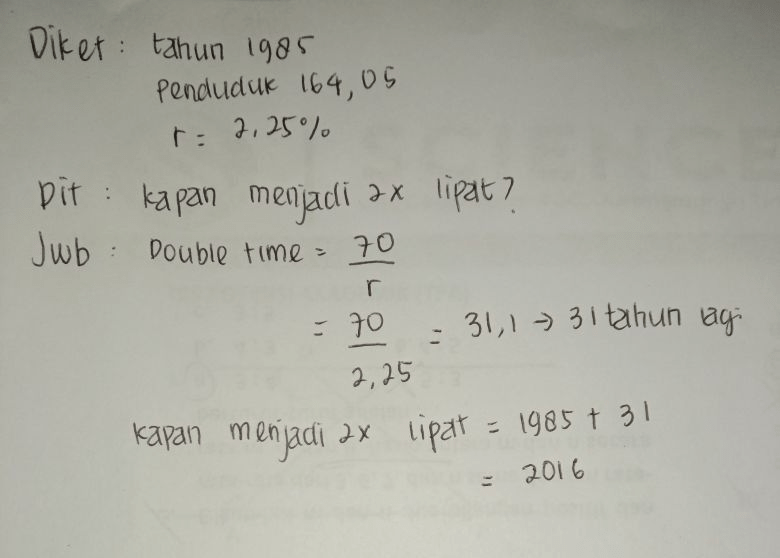 Diket : tahun 1985
Penduduk 164,05
r = 2,25%
Dit : kapan menjadi 2x lipat?
Jwb : Double time = 70
r
= 70 = 31,1 → 31 tahun lagi
2,25
kapan menjadi 2x lipat = 1985 + 31
= 2016